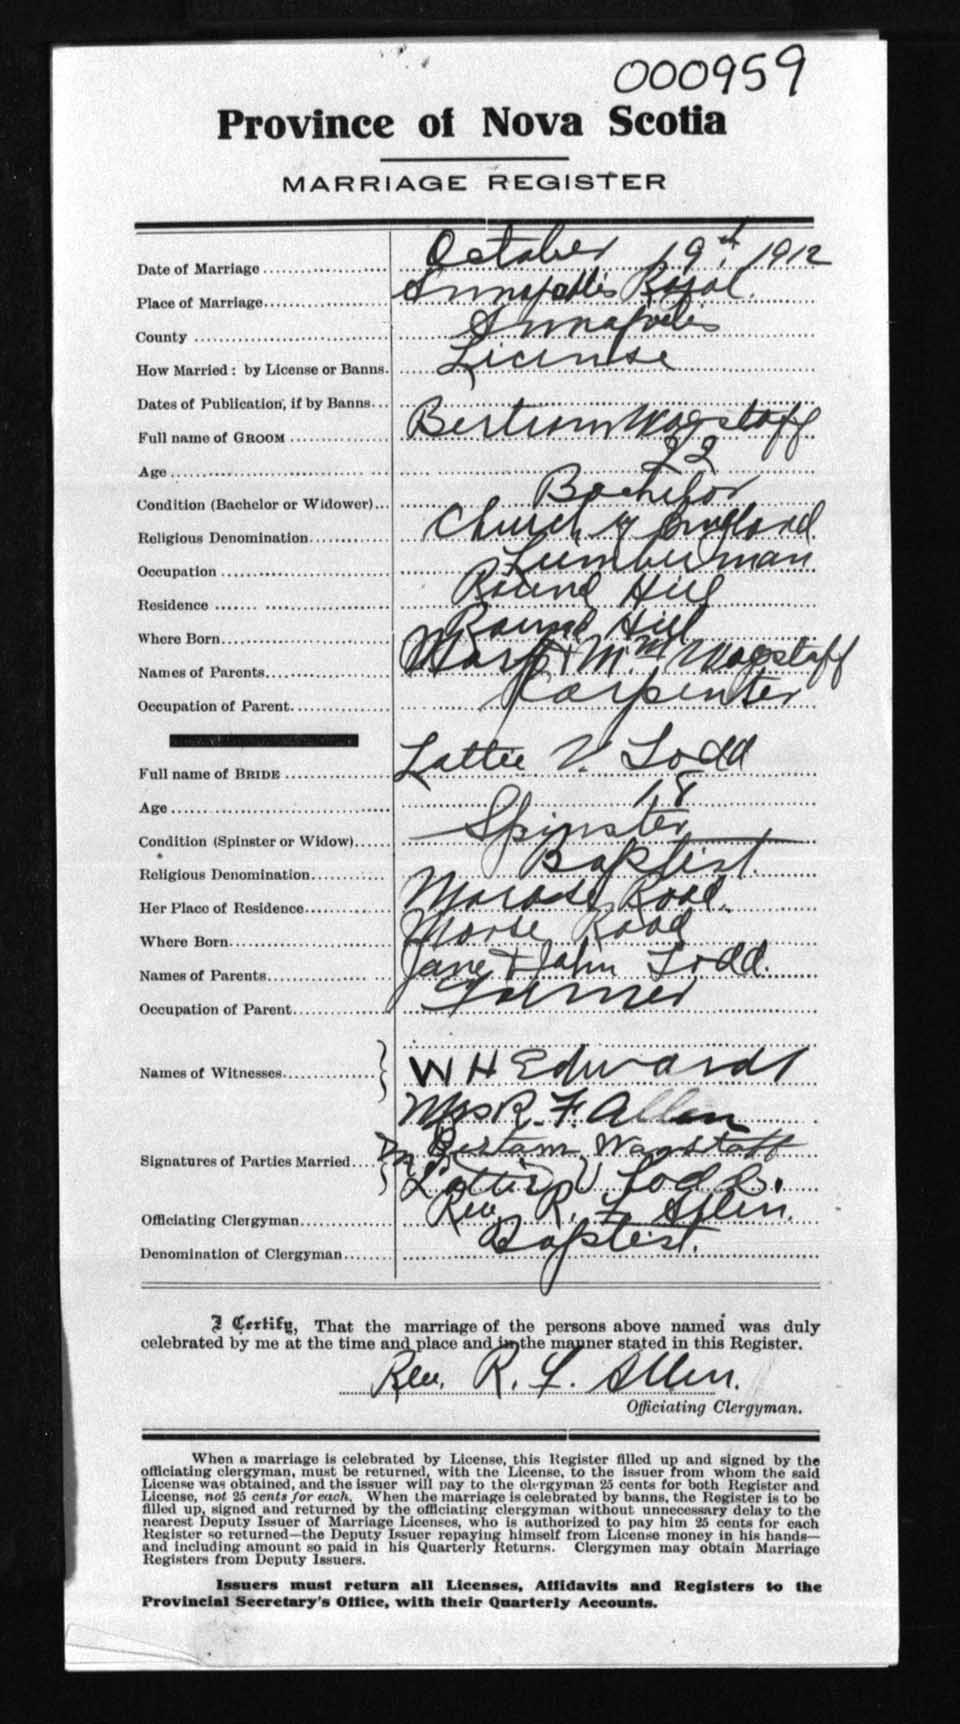 000959
Province of Nova Scotia
MARRIAGE REGISTER
Date of Marriage October 19th 1912
Place of Marriage Annapolis Royal.
County Annapolis
How Married: by License or Banns. License
Dates of Publication, if by Banns
Full name of GROOM Bertram Wagstaff
Age 22
Condition (Bachelor or Widower) Bachelor
Religious Denomination Church of England.
Occupation Lumberman
Residence Round Hill
Where Born Round Hill
Names of Parents Mary & Wm Wagstaff
Occupation of Parent Carpenter
Full name of BRIDE Lottie V. Todd
Age 18
Condition (Spinster or Widow) Spinster
Religious Denomination Baptist.
Her Place of Residence Morse Road.
Where Born Morse Road
Names of Parents Jane & John Todd.
Occupation of Parent Farmer
Names of Witnesses W H Edwards
Mrs R. F. Allen
Signatures of Parties Married Bertam Wagstaff
Lottie V Todd.
Officiating Clergyman Rev. R. F. Allen.
Denomination of Clergyman Baptist.
I Certify, That the marriage of the persons above named was duly
celebrated by me at the time and place and in the manner stated in this Register.
Rev. R. F. Allen.
Officiating Clergyman.
When a marriage is celebrated by License, this Register filled up and signed by the
officiating clergyman, must be returned, with the License, to the issuer from whom the said
License was obtained, and the issuer will pay to the clergyman 25 cents for both Register and
License, not 25 cents for each. When the marriage is celebrated by banns, the Register is to be
filled up, signed and returned by the officiating clergyman without unnecessary delay to the
nearest Deputy Issuer of Marriage Licenses, who is authorized to pay him 25 cents for each
Register so returned—the Deputy Issuer repaying himself from License money in his hands—
and including amount so paid in his Quarterly Returns. Clergymen may obtain Marriage
Registers from Deputy Issuers.
Issuers must return all Licenses, Affidavits and Registers to the
Provincial Secretary's Office, with their Quarterly Accounts.